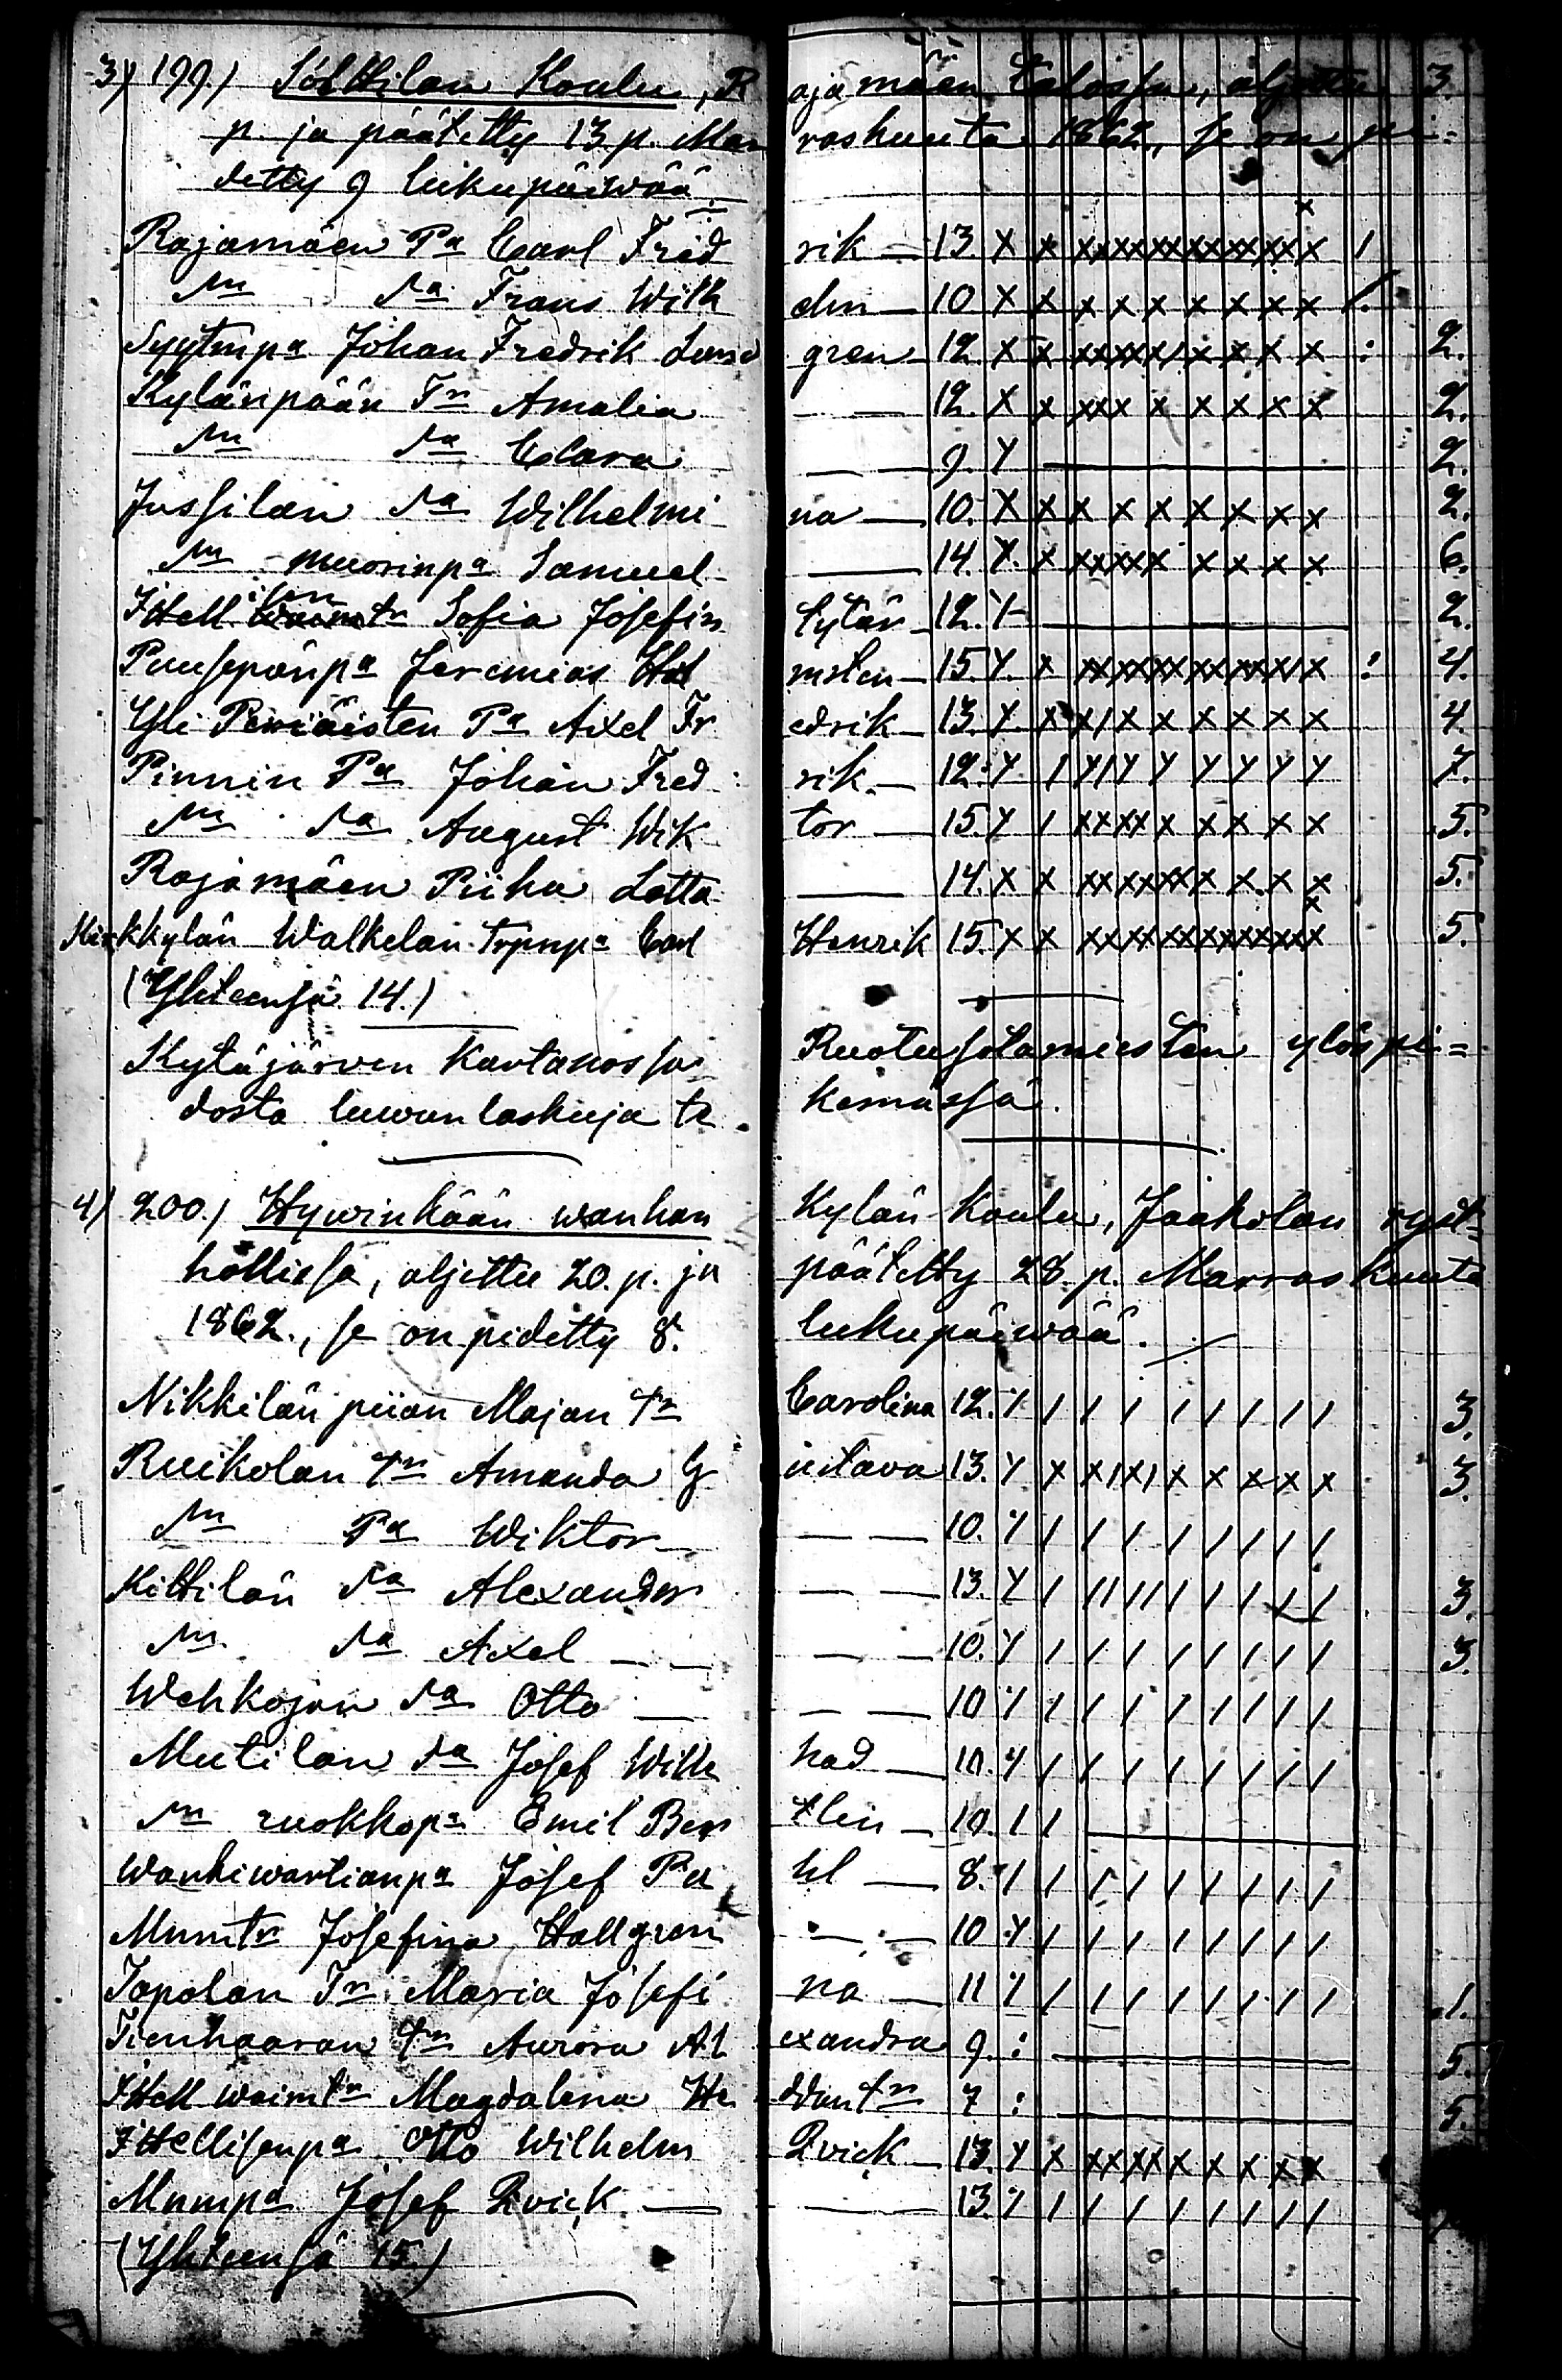 3) 199.) Sölttilän Koulu, Rajamäen talossa, aljettu 3.
p. ja päätetty 13. p. Marraskuuta 1862, se on pi=
detty 9 lukupäiwää
Rajamäen Pa Carl Fredrik — 13. X X XXXXXXXXXXXX X /
Sm Sa Frans Wilhelm — 10. X X X X X X X X X X /.
Syytmpa Johan Fredrik Lundgren — 12. X X XXXXX/ X X X X : 2.
Kylänpään Tr Amalia — — 12. X X XXX X X X X X X 2.
Sm Sa Clara — — 9. Y — 2.
Jussilan Sa Wilhelmina — 10. X X X X X X X X X X 2.
Sm muorinpa Samuel — 14. X. X XXXXX X X X X 6.
Itellisen tr Sofia Josefin tytär — 12. Y — 2.
Puusepänpa Jeremias Holmsten — 15. Y. X XXXXXXXXXXX X : 4.
Yli Periäisten Pa Axel Fredrik — 13. Y. X X/X X X X X X X 4.
Pinnin Pa Johan Fredrik — 12. Y / Y/Y Y Y Y Y Y Y 7.
Sm Sa August Wiktor — 15. Y / XXXX X X X X X 5.
Rajamäen Piika Lotta — 14. X X XXXXXX X X X X 5.
Kirkkylän Walkelan Tpnpa Carl Henrik 15. X X XXXXXXXXXXXXX 5.
(Yhteensä 14.)
Kytäjärven Kartanossa Ruotusotamiesten ylöspi=
dosta luwunlaskuja tekemässä.
4) 200.) Hywinkään wanhan Kylän Koulu, Jaakolan ryst=
höllissä, aljettu 20. p. ja päätetty 28. p. Marraskuuta
1862., se on pidetty 8. lukupäiwää.
Nikkilän piian Majan tr Carolina 12. Y / / / / / / / / 3.
Ruikolan tr Amanda Gustava 13. Y X X/X/ X X X X X 3.
Sm Pa Wiktor — — 10. Y / / / / / / / /
Kittilän Sa Alexander — — 13. Y / //// / / / / / 3.
Sm Sa Axel — — 10. Y / / / / / / / / 3.
Wehkojan Sa Otto — — 10 Y / / / / / / / /
Mutilan Sa Josef Wilhad — 10. Y / / / / / / / /
Sm ruokkopa Emil Berthlin — 10. / / —
Wankiwartianpa Josef Pahl — 8. Y / / / / / / / /
Mnmtr Josefina Hallgren — 10 Y / / / / / / / /
Topolan Tr Maria Josefina — 11 Y / / / / / / / / 1.
Tienhaaran tr Aurora Alexandra 9. : — 5.
Itell waimtr Magdalena Heddan tr 7 : — 5.
Itellisenpa Otto Wilhelm Qvick — 13. Y X XXXX X X X X X
Mnmpa Josef Qvick — 13. Y / / / / / / / /
(Yhteensä 15.)